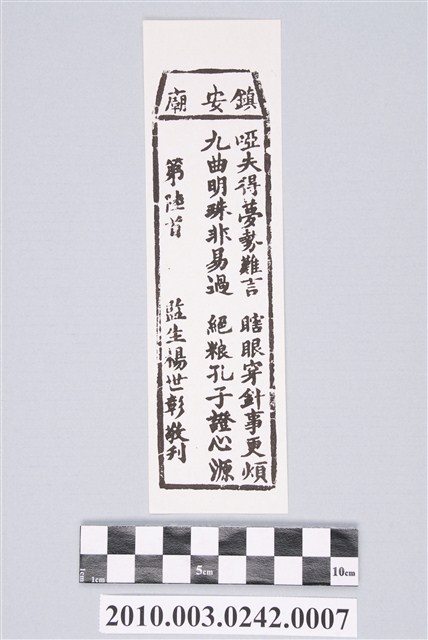 鎮安廟
啞夫得夢勢難言 瞎眼穿針事更煩
九曲明珠非易過 絕粮孔子證心源
第陸首 監生楊世彰敬刋
1cm
1cm
5cm
10cm
2010.003.0242.0007